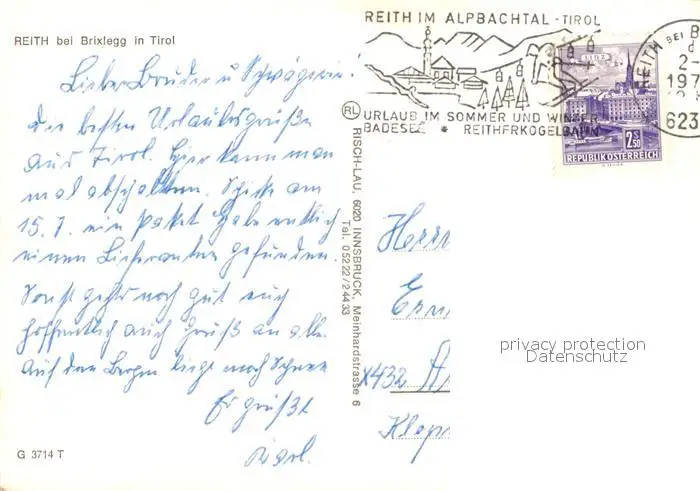 REITH bei Brixlegg in Tirol
Lieber Bruder u Schwägerin!
Die besten Urlaubsgrüße
aus Tirol. Hier kann man
mal abschalten. Schicke am
15. 7. ein Paket habe endlich
einen Lieferanten gefunden.
Sonst gehts noch gut euch
hoffentlich auch Gruß an alle.
Auf den Bergen liegt noch Schnee
Es grüßt
Karl.
G 3714 T
RISCH-LAU, 6020 INNSBRUCK, Meinhardstrasse 6
Tel. 05222/24433
RL
REITH IM ALPBACHTAL - TIROL
URLAUB IM SOMMER UND WINTER
BADESEE * REITHERKOGELBAHN
REITH BEI B
2.-
197
623
2.50
REPUBLIK ÖSTERREICH
Herrn
Ern
X432 A
Klep
privacy protection
Datenschutz